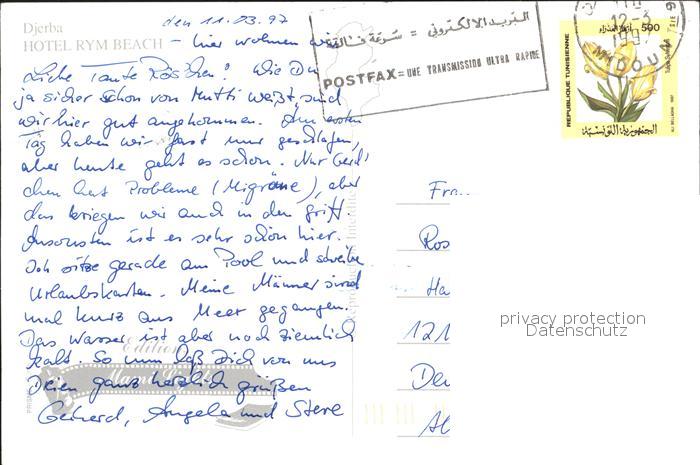 Djerba
HOTEL RYM BEACH
den 11.03.97
- hier wohnen wir
Liebe Tante Röschen! Wie Du
ja sicher schon von Mutti weißt, sind
wir hier gut angekommen. Am ersten
Tag haben wir fast nur geschlafen,
aber heute geht es schon. Nur Gerd'
chen hat Probleme (Migräne), aber
das kriegen wir auch in den Griff.
Ansonsten ist es sehr schön hier.
Ich sitze gerade am Pool und schreibe
Urlaubskarten. Meine Männer sind
mal kurz ans Meer gegangen.
Das Wasser ist aber noch ziemlich
kalt. So nun laß Dich von uns
Dreien ganz herzlich grüßen
Gerhard, Angela und Steve
البريد الإلكتروني = سرعة فائقة
POSTFAX = UNE TRANSMISSION ULTRA RAPIDE
12-3
1997
MIDOUN
REPUBLIQUE TUNISIENNE
500
الجمهورية التونسية
Edition
Fra..
Ros
Ha
121
De
Al
privacy protection
Datenschutz